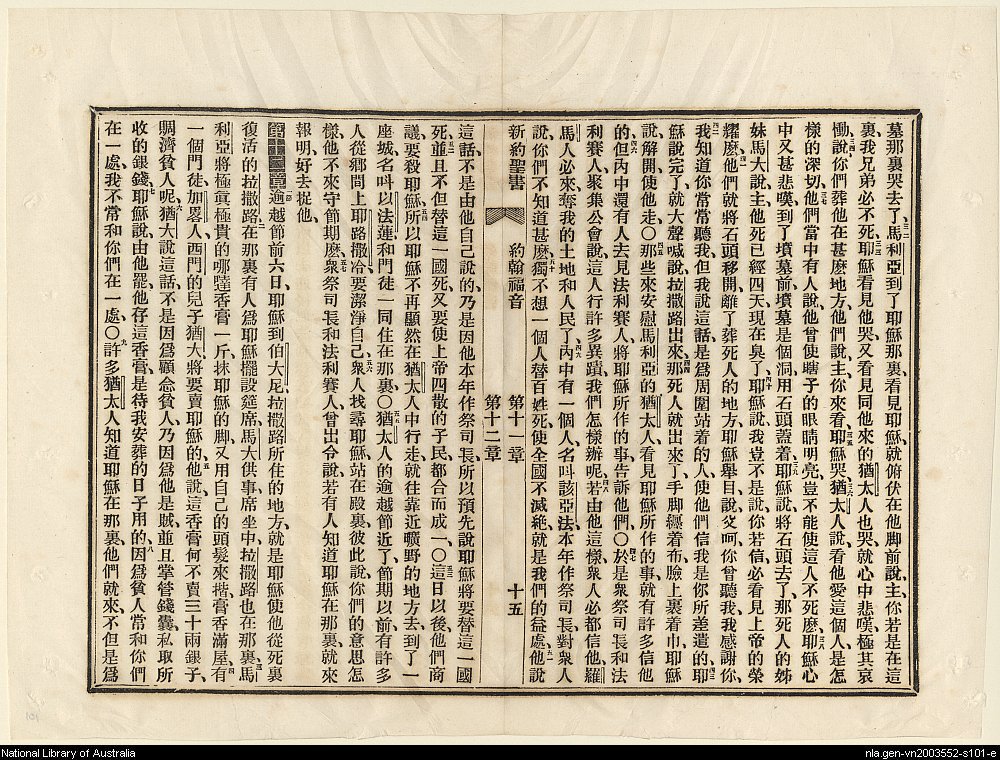 墓那裏哭去了、馬利亞到了耶穌那裏、看見耶穌就俯伏在他脚前說、主你若是在這
裏、我兄弟必不死、三三耶穌看見他哭、又看見同他來的猶太人也哭、就心中悲嘆、極其哀
慟、三四說你們葬他在甚麼地方、他們說主你來看、三五耶穌哭、三六猶太人說看他愛這個人是怎
樣的深切、三七他們當中有人說、他曾使瞎子的眼睛明亮、豈不能使這人不死麼、三八耶穌心
中又甚悲嘆、到了墳墓前、墳墓是個洞、用石頭蓋着、三九耶穌說、將石頭去了、那死人的姊
妹馬大說、主他死已經四天、現在臭了、四十耶穌說、我豈不是說、你若信必看見上帝的榮
耀麼、四一他們就將石頭移開、離了葬死人的地方、耶穌舉目說、父呵、你曾聽我、我感謝你、
四二我知道你常常聽我、但我說這話、是爲周圍站着的人、使他們信我是你所差遣的、四三耶
穌說完了、就大聲喊說、拉撒路出來、四四那死人就出來了、手脚纏着布、臉上裹着巾、耶穌
說、解開使他走、〇四五那些來安慰馬利亞的猶太人、看見耶穌所作的事、就有許多信他
的、四六但內中還有人去見法利賽人、將耶穌所作的事告訴他們、〇四七於是衆祭司長和法
利賽人聚集公會說、這人行許多異蹟、我們怎樣辦呢、四八若由他這樣、衆人必都信他、羅
馬人必來奪我的土地和人民了、四九內中有一個人、名呌該亞法、本年作祭司長、對衆人
說、你們不知道甚麼、五十獨不想一個人替百姓死、使全國不滅絕、就是我們的益處、五一他說
新約聖書　約翰福音　第十一章　第十二章　十五
這話不是由他自己說的、乃是因他本年作祭司長、所以預先說耶穌將要替這一國
死、五二並且不但替這一國死、又要使上帝四散的子民、都合而成一、〇五三這日以後、他們商
議要殺耶穌、五四所以耶穌不再顯然在猶太人中行走、就往靠近曠野的地方去、到了一
座城、名呌以法蓮、和門徒一同住在那裏、〇五五猶太人的逾越節近了、節期以前、有許多
人從鄉間上耶路撒冷、要潔淨自己、五六衆人找尋耶穌、站在殿裏彼此說、你們的意思怎
樣、他不來守節期麼、五七衆祭司長和法利賽人曾出令說、若有人知道耶穌在那裏、就來
報明、好去捉他、
第十二章逾越節前六日、耶穌到伯大尼、拉撒路所住的地方、就是耶穌使他從死裏
復活的拉撒路、二在那裏有人爲耶穌擺設筵席、馬大供事、席坐中拉撒路也在那裏、三馬
利亞將極眞極貴的哪噠香膏一斤、抹耶穌的脚、又用自己的頭髮來揩、膏香滿屋、四有
一個門徒、加畧人西門的兒子猶大、將要賣耶穌的、他五說這香膏何不賣三十兩銀子、
賙濟貧人呢、六猶大說這話、不是因爲顧念貧人、乃因爲他是賊、並且掌管錢囊、私取所
收的銀錢、七耶穌說、由他罷、他存這香膏、是待我安葬的日子用的、八因爲貧人常和你們
在一處、我不常和你們在一處、〇九許多猶太人知道耶穌在那裏、他們就來、不但是爲
National Library of Australia
nla.gen-vn2003552-s101-e